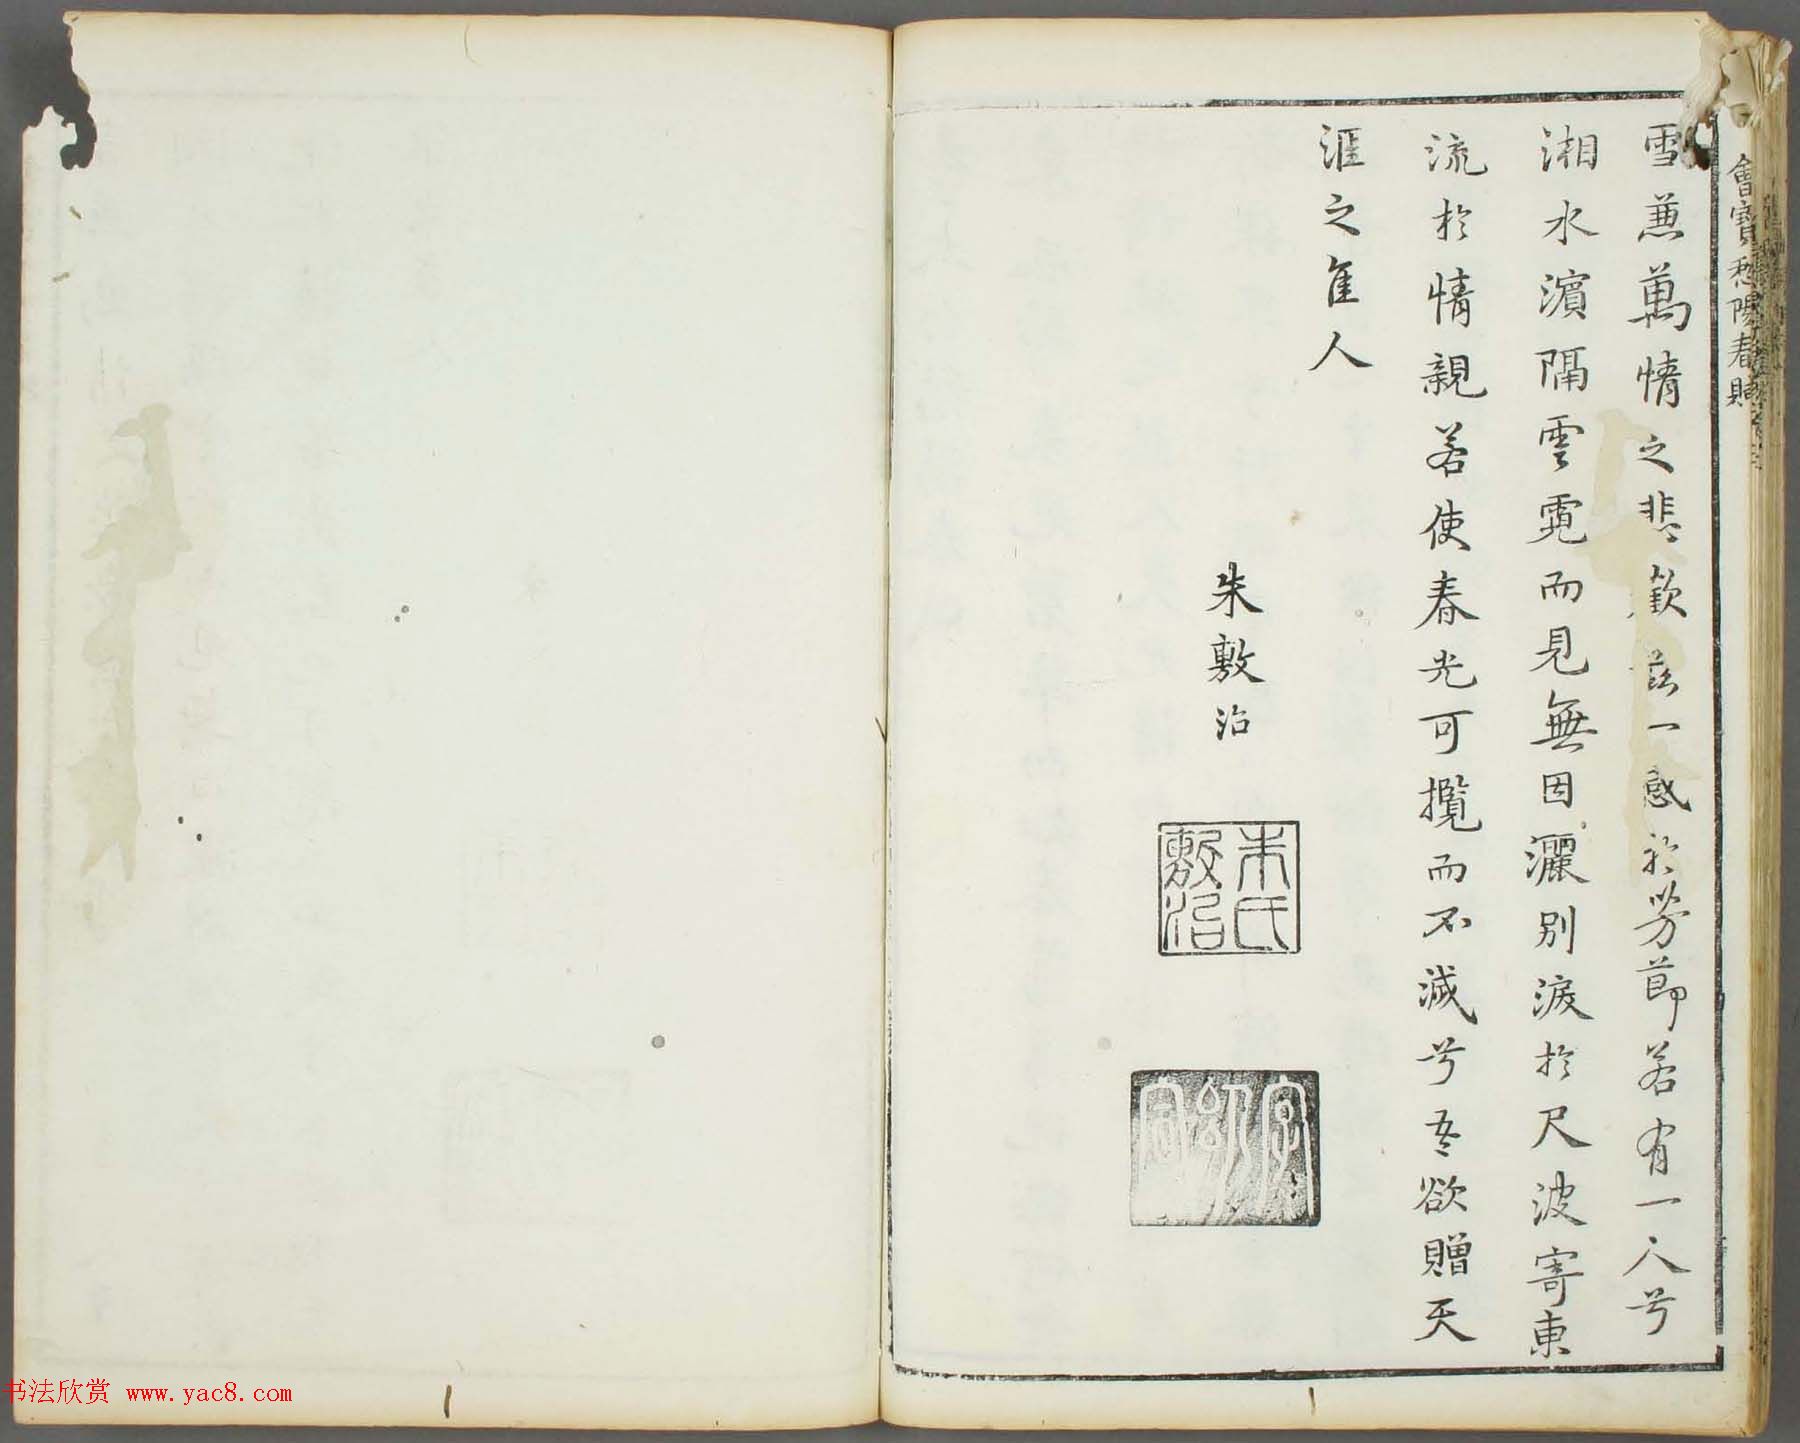 雪兼萬情之悲歡茲一感於芳節若有一人兮
湘水濱隔雲霓而見無因灑別淚於尺波寄東
流於情親若使春光可攬而不滅兮吾欲贈天
涯之隹人
朱敷治
朱氏
敷治
會寶愁陽春賦
书法欣赏 www.yac8.com